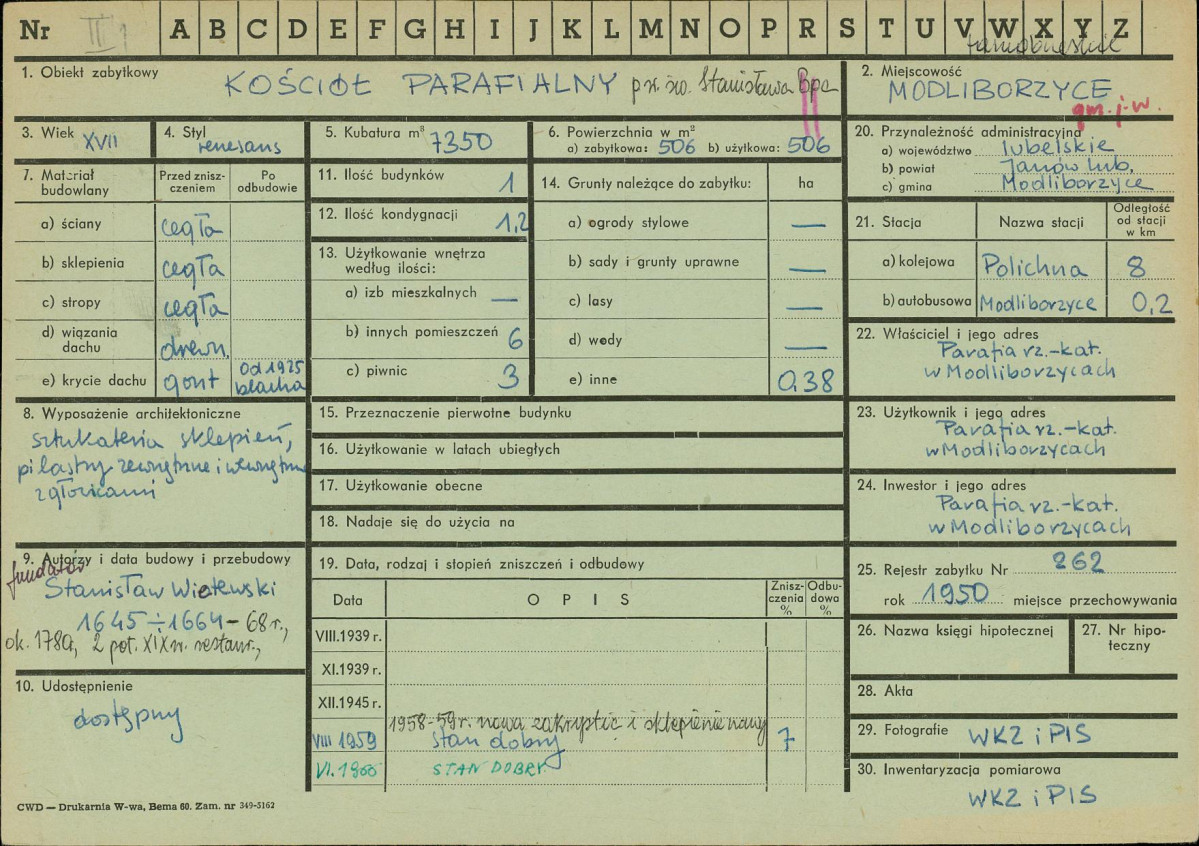 Nr II A B C D E F G H I J K L M N O P R S T U V W X Y Z
tarnobrzeskie
1. Obiekt zabytkowy
KOŚCIÓŁ PARAFIALNY p.w. św. Stanisława Bpa
2. Miejscowość
MODLIBORZYCE
gm. j-w.
3. Wiek XVII
4. Styl
renesans
5. Kubatura m³ 7350
6. Powierzchnia w m²
a) zabytkowa: 506 b) użytkowa: 506
20. Przynależność administracyjna
a) województwo lubelskie
b) powiat Janów lub.
c) gmina Modliborzyce
7. Materiał budowlany
Przed zniszczeniem
Po odbudowie
a) ściany cegła
b) sklepienia cegła
c) stropy cegła
d) wiązania dachu drewn.
e) krycie dachu gont od 1925 blacha
11. Ilość budynków 1
12. Ilość kondygnacji 1,2
13. Użytkowanie wnętrza
według ilości:
a) izb mieszkalnych —
b) innych pomieszczeń 6
c) piwnic 3
14. Grunty należące do zabytku: ha
a) ogrody stylowe —
b) sady i grunty uprawne —
c) lasy —
d) wody —
e) inne 0,38
21. Stacja
Nazwa stacji
Odległość od stacji w km
a) kolejowa Polichna 8
b) autobusowa Modliborzyce 0,2
22. Właściciel i jego adres
Parafia rz.-kat.
w Modliborzycach
8. Wyposażenie architektoniczne
sztukateria sklepień,
pilastry zewnętrzne i wewnętrzne
z głowicami
15. Przeznaczenie pierwotne budynku
16. Użytkowanie w latach ubiegłych
17. Użytkowanie obecne
18. Nadaje się do użycia na
23. Użytkownik i jego adres
Parafia rz.-kat.
w Modliborzycach
24. Inwestor i jego adres
Parafia rz.-kat.
w Modliborzycach
9. Autorzy i data budowy i przebudowy
fundator
Stanisław Wiotewski
1645 ÷ 1664 – 68 r.,
ok. 1780, 2 poł. XIX w. restaur.,
10. Udostępnienie
dostępny
19. Data, rodzaj i stopień zniszczeń i odbudowy
Data
OPIS
Zniszczenia %
Odbudowa %
VIII.1939 r.
XI.1939 r.
XII.1945 r.
1958-59 r. nowa zakrystię i sklepienie nawy
VIII 1959 stan dobry 7
VI.1966 STAN DOBRY
25. Rejestr zabytku Nr 262
rok 1950 miejsce przechowywania
26. Nazwa księgi hipotecznej
27. Nr hipoteczny
28. Akta
29. Fotografie WKZ i PIS
30. Inwentaryzacja pomiarowa
WKZ i PIS
CWD — Drukarnia W-wa, Bema 60. Zam. nr 349-5162